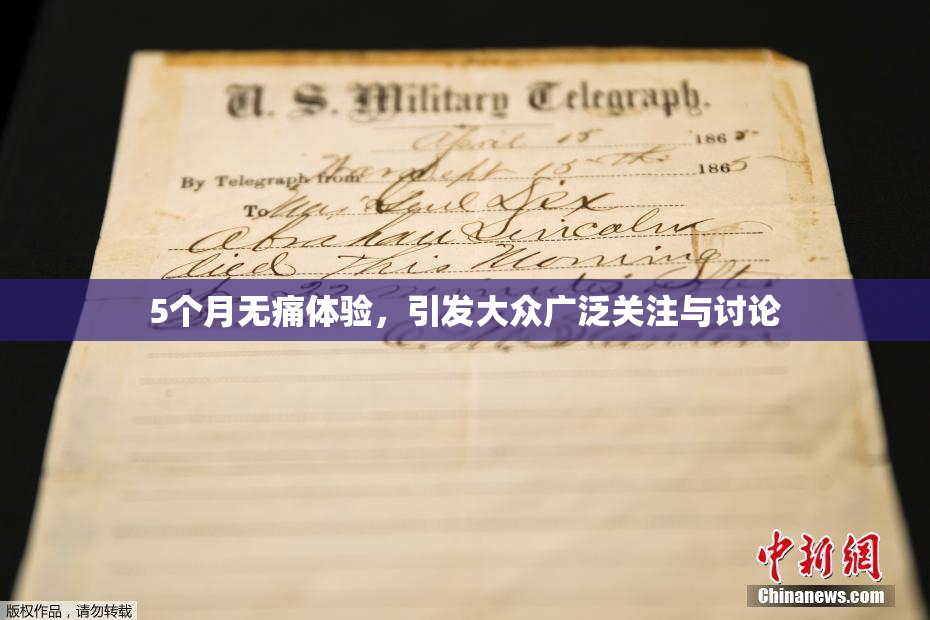 U. S. Military Telegraph.
April 15 1865
By Telegraph from War Dept 15 th 1865
To Maj Genl Dix
Abraham Lincoln
died This Morning
at 22 minutes after
5个月无痛体验，引发大众广泛关注与讨论
中新網
Chinanews.com
版权作品，请勿转载